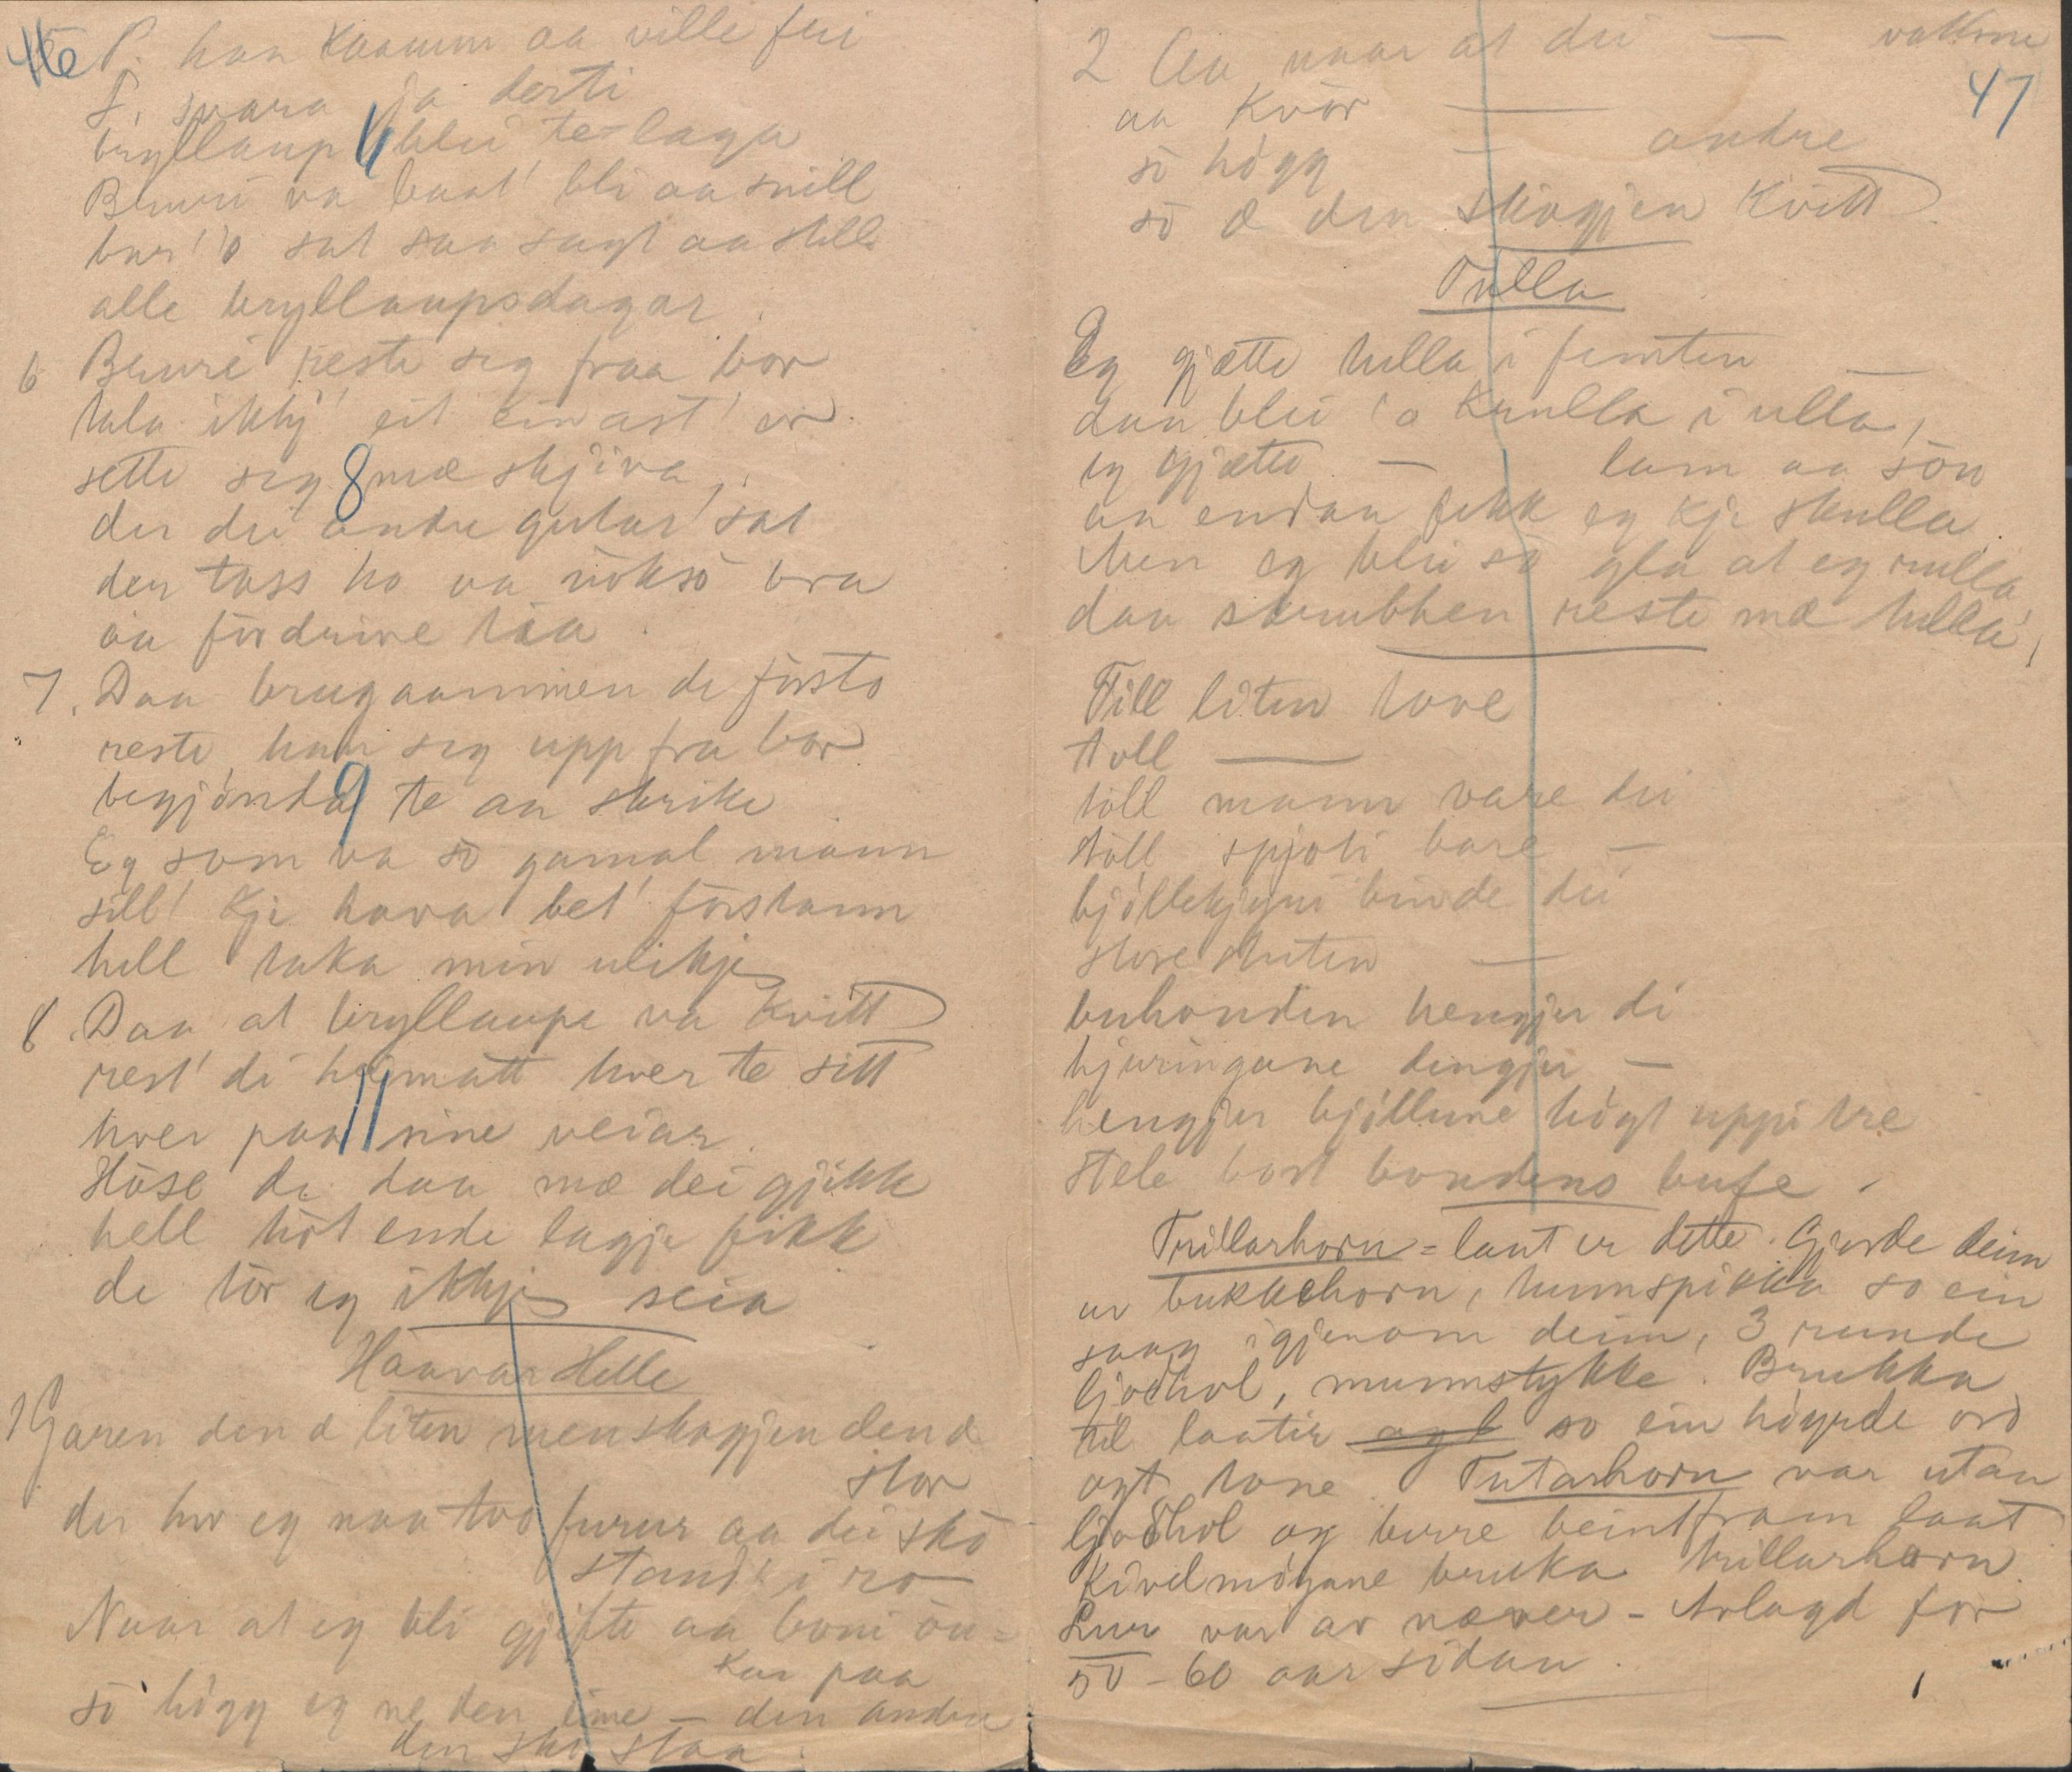 46
P. han kaamm aa ville fri
T. svara ja derti
bryllaup 4 blei te laga
Bruri va baat' bli aa snill
bur' o sat saa sagt aa still
alle bryllaupsdagar.
6 Bruri reste seg fraa bor
tala ikkj' eit einast' or
sette seg 8 mæ skjiva,
der dei andre gutar' sat
den tass ho va nökso bra
aa fördrive tia.
7. Daa brugaammen de forsto
reste han seg upp fra bor
begjönda 9 te aa skrike
Eg som va so gamal mann
sill' kje hava bet' förstann
hell taka min ulikje
8. Daa at bryllaupe va kvitt
rest' di heimatt hver te sitt
hver paa 11 sine veiar.
Höse de daa mæ dei gjikk
hell höt ende lagje fikk
de tör eg ikkje seia
Haavar Helle
1 Garen den æ liten men skogjen den æ
stor
der hev eg naa tvo furur aa dei sko
stande i ro
Naar at eg bli gjifte aa boni öu=
kar paa
so högg eg ne den eine – den andre
den sko staa.
47
2 Aa naar at dei — vakrne
aa kvör —
so högg — andre
so æ den skogjen kvitt
Tulla
Eg gjætte tulla i femten —
daa blei 'o krulla i ulla,
eg gjætte — lam aa son
aa endaa fekk eg kje skulla
Men eg blei so gla at eg rulla
daa skrubben reste mæ tulla,
Till liten tove
toll —
toll mann vare dei
toll spjoti bare —
bjöllekjyri binde dei
store stuten —
buhonden hengjer di
hjuringane dengjer —
hengjer bjöllune högt uppi tre
stele bort bondens bufe.
Trillarhorn = laut er dette. Gjorde deim
av bukkehorn, hunnspikka so ein
saag igjenom deim, 3 runde
ljodhol, munnstykke. Brukka
til laatir so ein höyrde ord
ogt tone. Tutarhorn var utan
ljodhol og berre beintfram laat
Kivelmöyane bruka trillarhorn.
Lur var av næver – Avlagd for
50 – 60 aar sidan.